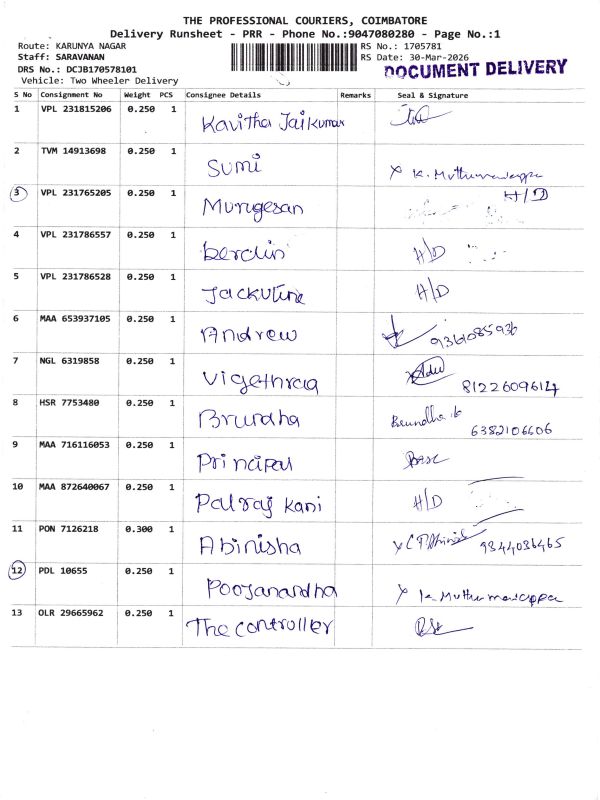 THE PROFESSIONAL COURIERS, COIMBATORE
Delivery Runsheet - PRR - Phone No.:9047080280 - Page No.:1
Route: KARUNYA NAGAR
RS No.: 1705781
Staff: SARAVANAN
RS Date: 30-Mar-2026
DRS No.: DCJB170578101
DOCUMENT DELIVERY
Vehicle: Two Wheeler Delivery
S No Consignment No Weight PCS Consignee Details Remarks Seal & Signature
1 VPL 231815206 0.250 1 Kavitha Jaikumar
2 TVM 14913698 0.250 1 Sumi K. Muthumariappa
3 VPL 231765205 0.250 1 Murugesan H/D
4 VPL 231786557 0.250 1 berclin H/D
5 VPL 231786528 0.250 1 Jackuline H/D
6 MAA 653937105 0.250 1 Andrew 9361085936
7 NGL 6319858 0.250 1 Vigethraa 8122609614
8 HSR 7753480 0.250 1 Brundha Brundha 6382106606
9 MAA 716116053 0.250 1 Principal
10 MAA 872640067 0.250 1 Palraj Kani H/D
11 PON 7126218 0.300 1 Abinisha 9344036465
12 PDL 10655 0.250 1 Poojanandha K. Muthumariappa
13 OLR 29665962 0.250 1 The controller